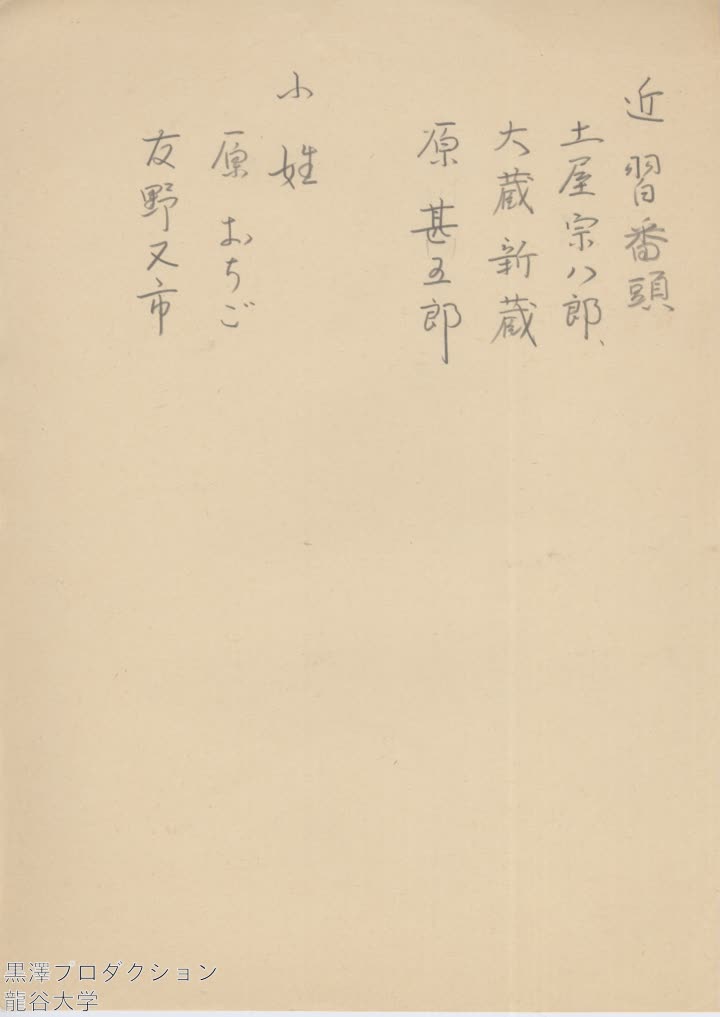 近習番頭
土屋宗八郎、
大蔵新蔵
原甚五郎
小姓
原おちご
友野又市
黒澤プロダクション
龍谷大学